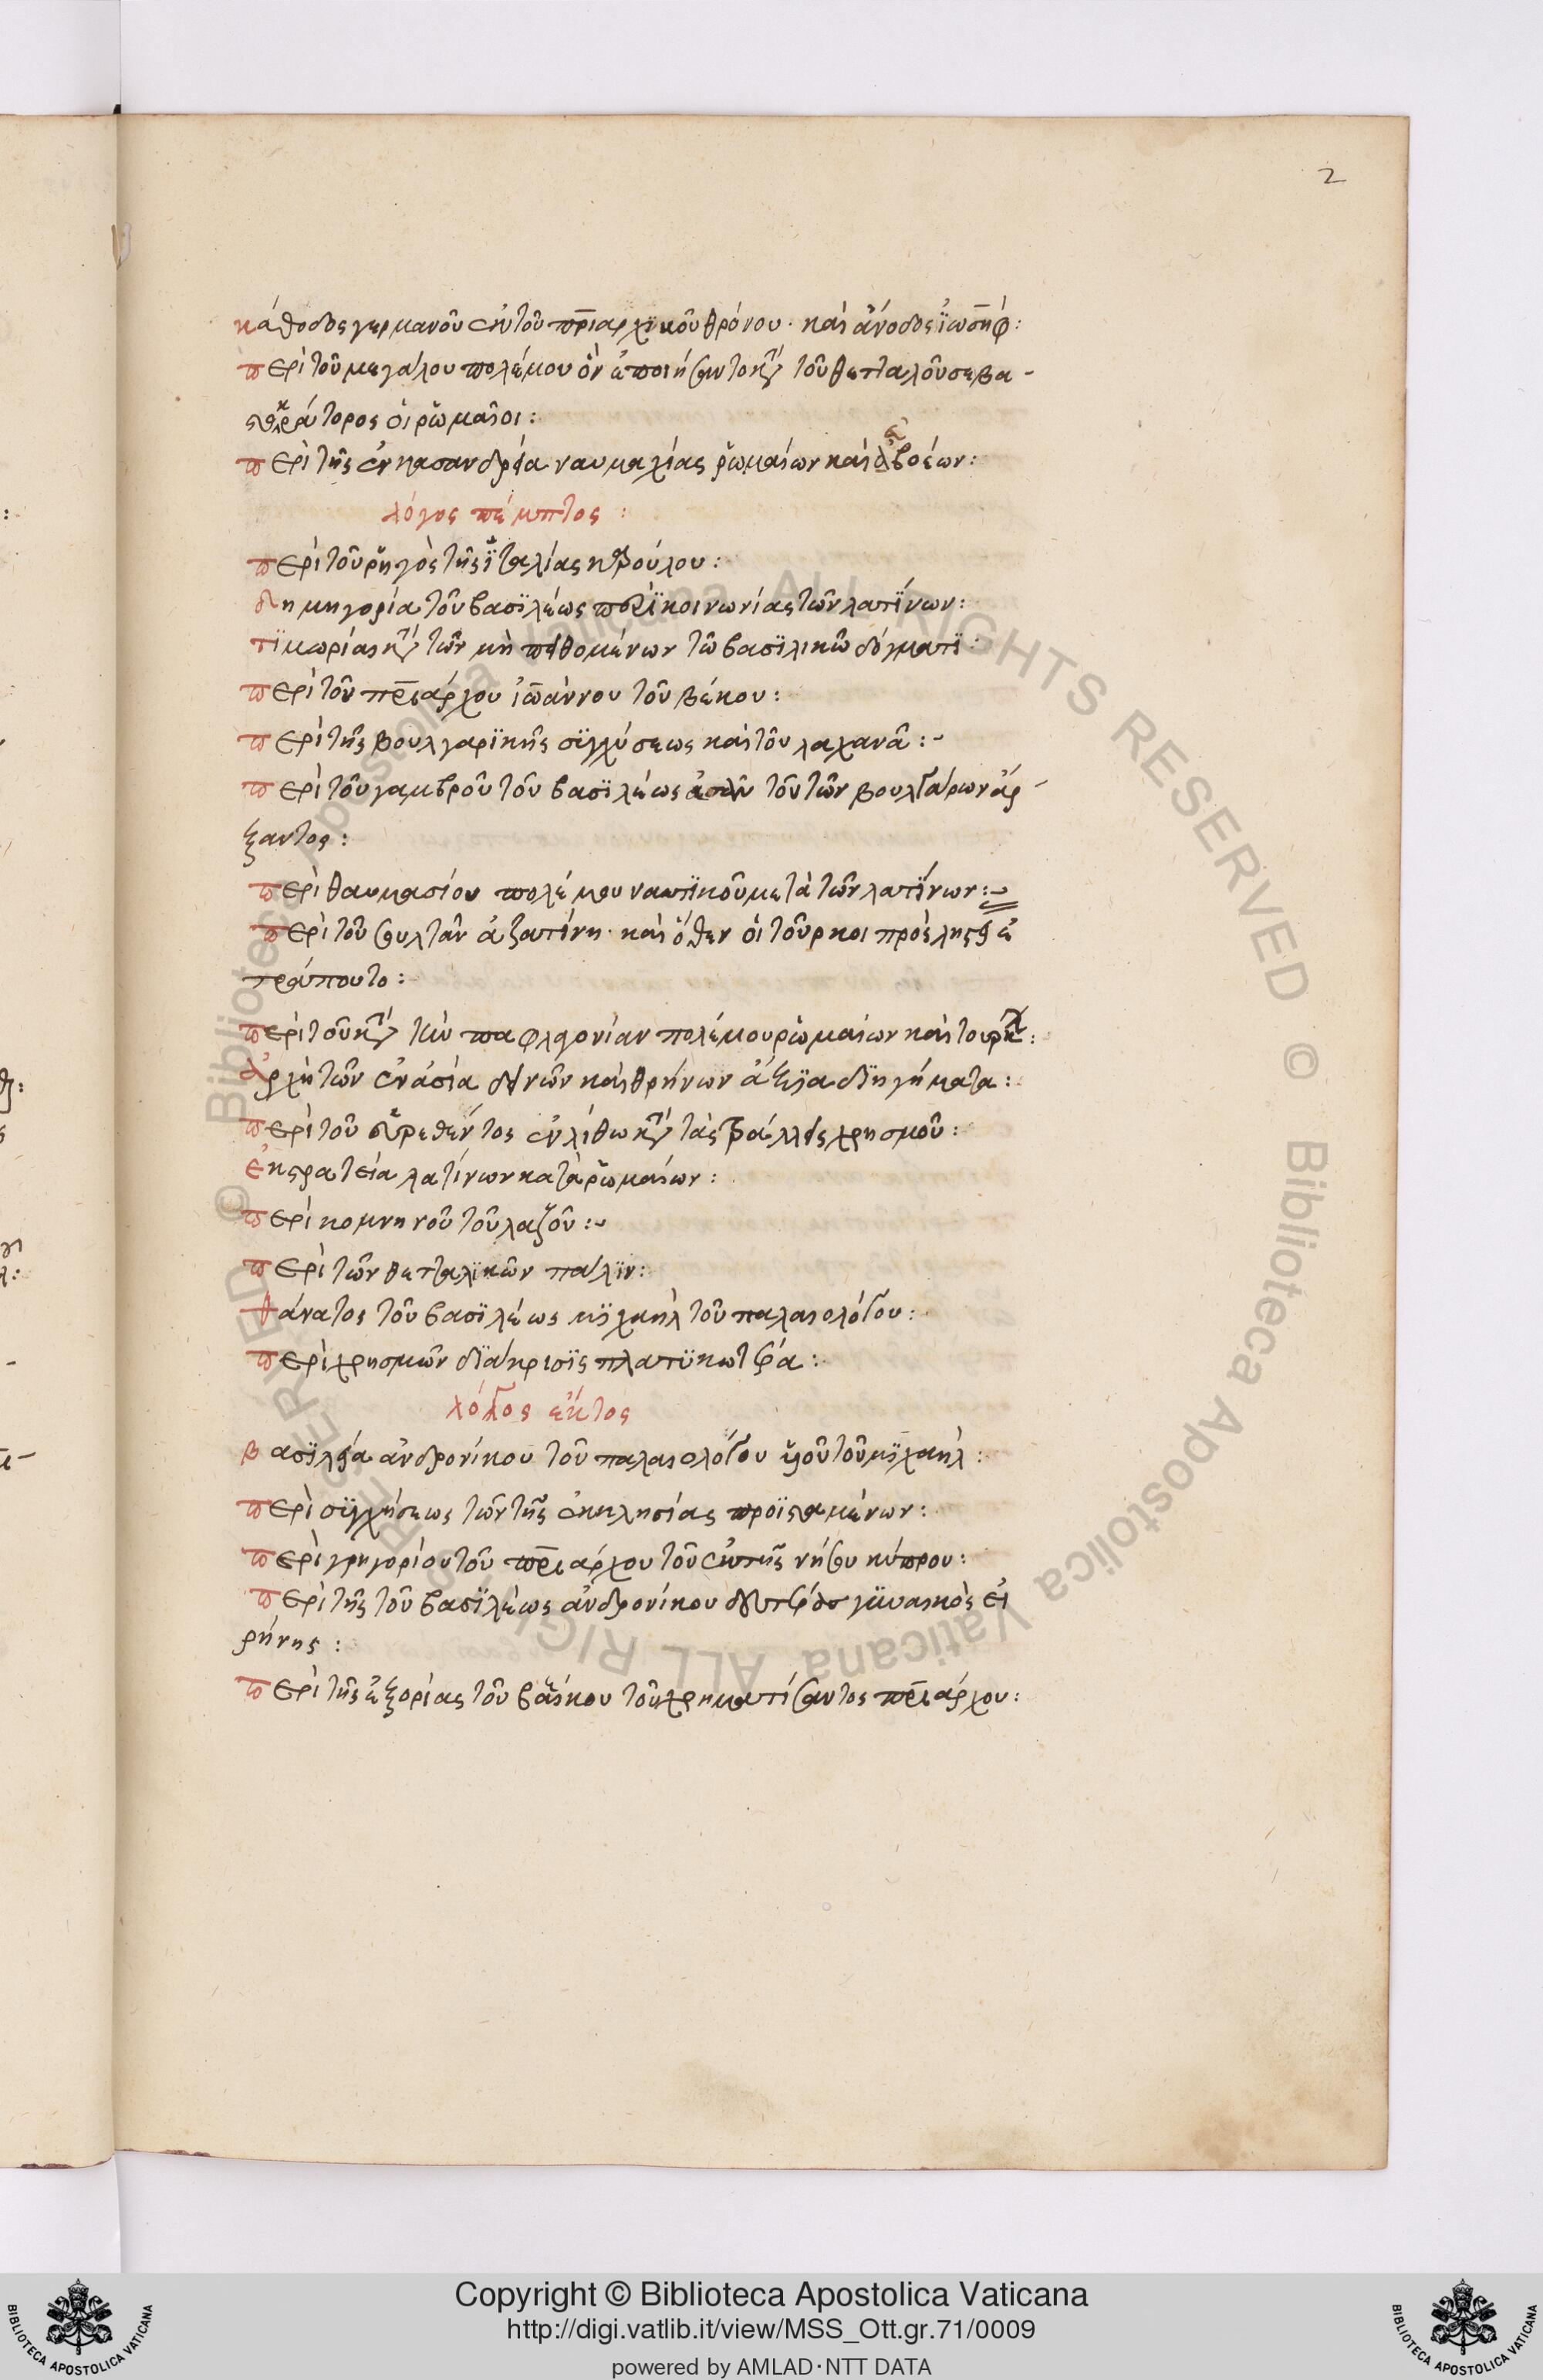 2
κάθοδος γερμανοῦ ἐκ τοῦ πριαρχϊκοῦ θρόνου· καὶ ἄνοδος ἰωσὴφ:
περὶ τοῦ μεγάλου πολέμου ὃν ἐποιήσαντο κατὰ τοῦ θετταλοῦ σεβα-
στοκράτορος οἱ ῥωμαῖοι:
περὶ τῆς ἐν κασανδρεία ναυμαχίας ῥωμαίων καὶ εὐβοέων:
λόγος πέμπτος:
περὶ τοῦ ῥηγὸς τῆς ἰταλίας καρούλου:
δημηγορία τοῦ βασϊλέως περὶ κοινωνίας τῶν λατίνων:
τϊμωρίας κατὰ τῶν μὴ πειθομένων τῶ βασϊλικῶ δόγματϊ:
περὶ τοῦ πριάρχου ἰωάννου τοῦ βέκου:
περὶ τῆς βουλγαρϊκῆς σϋγχύσεως καὶ τοῦ λαχανᾶ:~
περὶ τοῦ γαμβροῦ τοῦ βασϊλέως ἀσὰν τοῦ τῶν βουλγάρων ἄρ-
ξαντος:
περὶ θαυμασίου πολέμου ναυτϊκοῦ μετὰ τῶν λατίνων:~
περὶ τοῦ σουλτὰν ἀζατίνη· καὶ ὅθεν οἱ τοῦρκοι πρὸς ληστείαν ἐ
τράποντο:
περὶ τοῦ κατὰ τὴν παφλαγονίαν πολέμου ῥωμαίων καὶ τούρκων:
ἀρχὴ τῶν ἐν ἀσία δεινῶν καὶ θρήνων ἄξϊα διηγήματα:
περὶ τοῦ εὑρεθέντος ἐν λίθω κατὰ τὰς τράλλεις χρησμοῦ:
ἐκστρατεία λατίνων κατὰ ῥωμαίων:
περὶ κομνηνοῦ τοῦ λαζοῦ:~
περὶ τῶν θετταλϊκῶν πάλϊν:
θάνατος τοῦ βασϊλέως μϊχαὴλ τοῦ παλαιολόγου:
περὶ χρησμῶν διάκρισϊς πλατϋκωτέρα:
λόγος ἕκτος
βασϊλεία ἀνδρονίκου τοῦ παλαιολόγου υἱοῦ τοῦ μϊχαήλ:
περὶ σϋγχύσεως τῶν τῆς ἐκκλησίας προϊσταμένων:
περὶ γρηγορίου τοῦ πριάρχου τοῦ ἐκ τῆς νήσου κύπρου:
περὶ τῆς τοῦ βασϊλέως ἀνδρονίκου δευτέρας γϋναικὸς εἰ
ρήνης:
περὶ τῆς ἐξορίας τοῦ βαίκου τοῦ χρηματίσαντος πριάρχου:
Copyright © Biblioteca Apostolica Vaticana
http://digi.vatlib.it/view/MSS_Ott.gr.71/0009
powered by AMLAD·NTT DATA
© Biblioteca Apostolica Vaticana ALL RIGHTS RESERVED
© Biblioteca Apostolica Vaticana ALL RIGHTS RESERVED
BIBLIOTECA APOSTOLICA VATICANA
BIBLIOTECA APOSTOLICA VATICANA